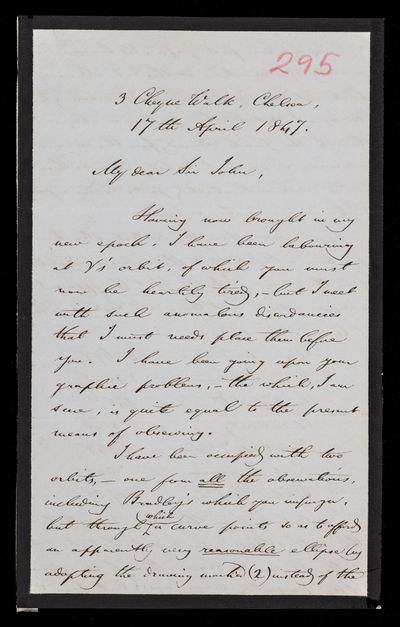 295
3 Cheyne Walk, Chelsea,
17th April 1847.
My dear Sir John,
Having now brought in my
new epoch, I have been labouring
at γ's orbit, of which you must
now be heartily tired, – but I meet
with such anomalous discordancies
that I must needs place them before
you. I have been going upon your
graphic problem, – the which, I am
sure, is quite equal to the present
means of observing.
I have been occupied with two
orbits, – one from all the observations,
including Bradley's which you impugn,
which
but through curve points so as to afford
an apparently very reasonable ellipse (by
adopting the drawing marked (2) instead of the